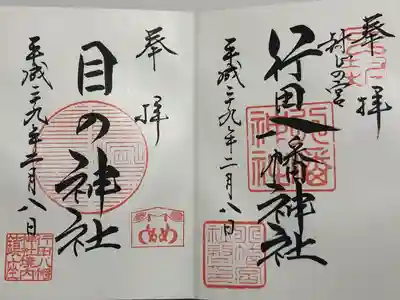 奉拝
封じの宮
行田八幡神社
平成二九年二月八日
奉拝
目の神社
平成二九年二月八日
めめ